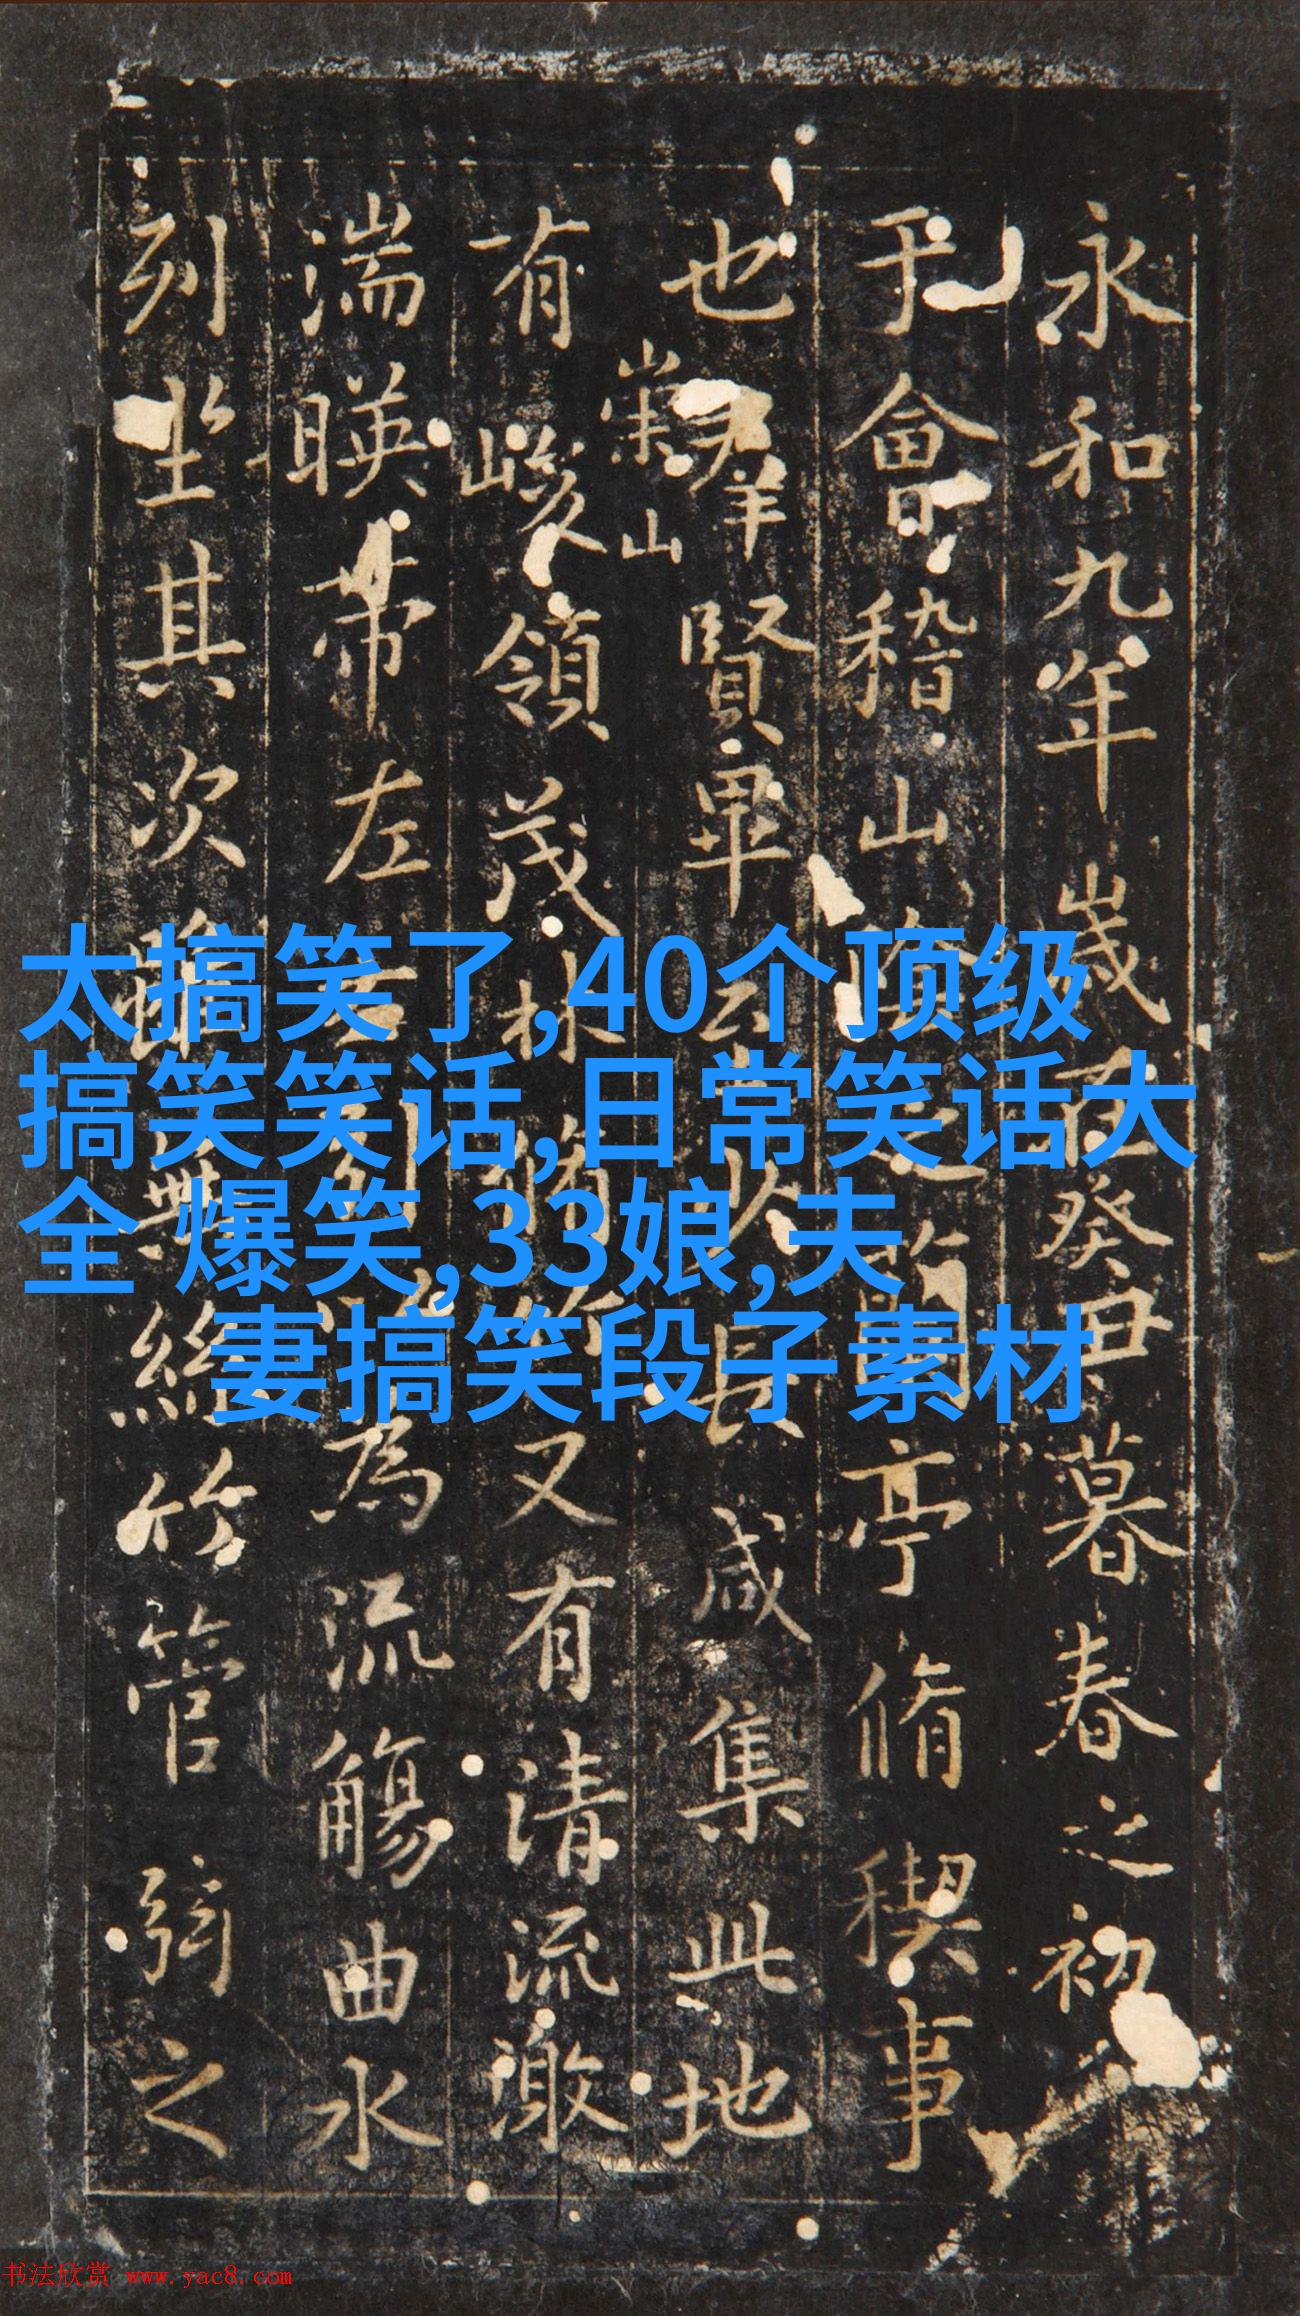 永和九年歲在癸丑暮春之初
于會稽山陰之蘭亭脩稧事
也羣賢畢
長咸集此地
崇山
有峻領茂林脩
又有清流激
湍暎帶左右
為流觴曲水
列坐其次雖無絲竹管弦之
太搞笑了,40个顶级
搞笑笑话,日常笑话大
全 爆笑,33娘,夫
妻搞笑段子素材
书法欣赏 www.yac8.com